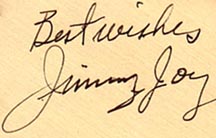 Best wishes
Jimmy Joy